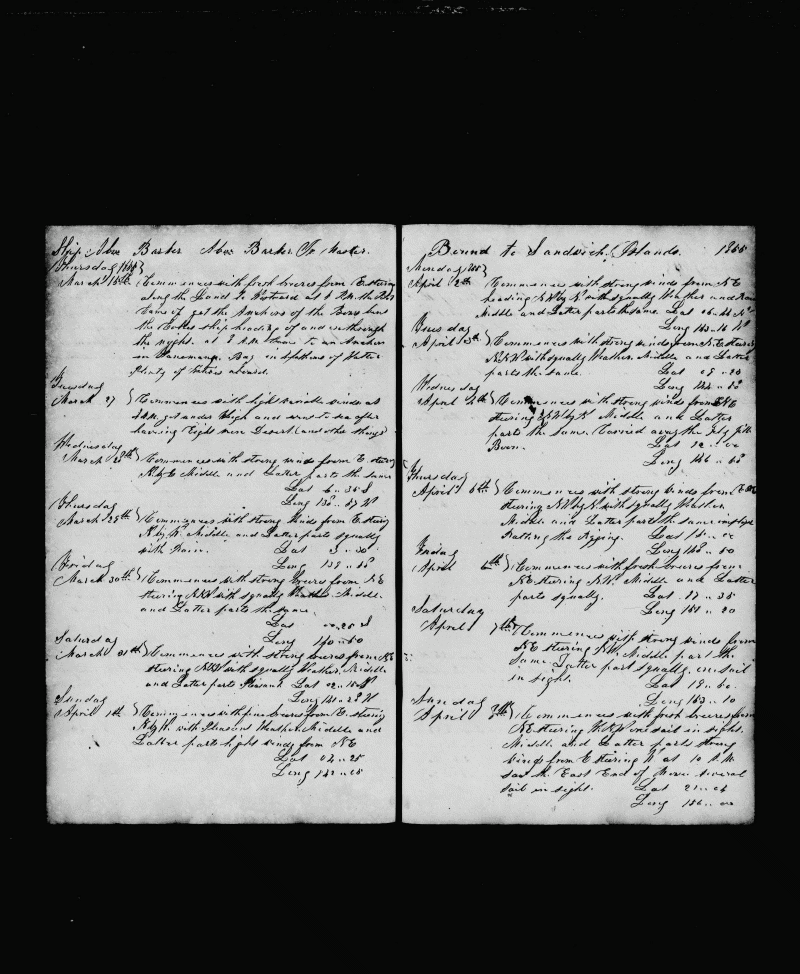 Ship Abm Barker Abm Barker To Master.
Thursday 1855
March 15th Commences with fresh breezes from E steering
along the Land to Westward at 4 P.M. the Port
the Boats ship heading of and on through
the night. at 8 A.M. Came to an Anchor
in Bay in fathoms of Water
Plenty of aboard.
Tuesday
March 27 Commences with light variable winds at
A.M. got under Weigh and went to sea after
having Eight men Desert (and other things)
Wednesday
March 28th Commences with strong winds from E steering
N by E Middle and Latter parts the same
Lat 6 .. 35 S
Long 137 .. 57 W
Thursday
March 29th Commences with strong Winds from E steering
N by W. Middle and Latter parts squally
with Rain. Lat 3 .. 30
Long 139 .. 50
Friday
March 30th Commences with strong breezes from NE
steering NNW with squally Weather Middle
and Latter parts the same.
Lat 00.25 S
Long 140 .. 50
Saturday
March 31th Commences with strong breezes from NE
steering NNW with squally Weather. Middle
and Latter parts Pleasant Lat 02 .. 10 N
Long 141 .. 20 W
Sunday
April 1th Commences with fine breezes from E. steering
N by W. with Pleasant Weather. Middle and
Latter parts light winds from NE
Lat 04 .. 25
Long 142 .. 05
Bound to Sandwich Islands. 1855
Monday 1855
April 2th Commences with strong winds from NE
heading NW by N with squally Weather and Rain
Middle and Latter parts the same. Lat 06.44 N
Long 143.16 W
Tuesday
April 3th Commences with strong winds from NE steering
NNW with squally Weather. Middle and Latter
parts the same. Lat 09 .. 20
Long 144 .. 50
Wednesday
April 4th Commences with strong winds from ENE
steering NW by N Middle and Latter
parts the same. Carried away the Flyg Jib
Boom. Lat 12 .. 00
Long 146 .. 50
Thursday
April 5th Commences with strong winds from ENE
steering NW by N. with squally Weather.
Middle and Latter parts the same employed
Ratling the Rigging. Lat 15 .. 00
Long 148 .. 50
Friday
April 6th Commences with fresh breezes from
NE steering NW. Middle and Latter
parts squally. Lat 17 .. 35
Long 151 .. 20
Saturday
April 7th Commences with strong winds from
NE steering NW. Middle part the
same. Latter part squally. one sail
in sight. Lat 19 .. 50
Long 153 .. 10
Sunday
April 8th Commences with fresh breezes from
NE steering WNW one sail in sight.
Middle and Latter parts strong
winds from E steering W at 10 A.M.
saw the East End of Mowee several
sail in sight. Lat 21 .. 04
Long 156 .. 00